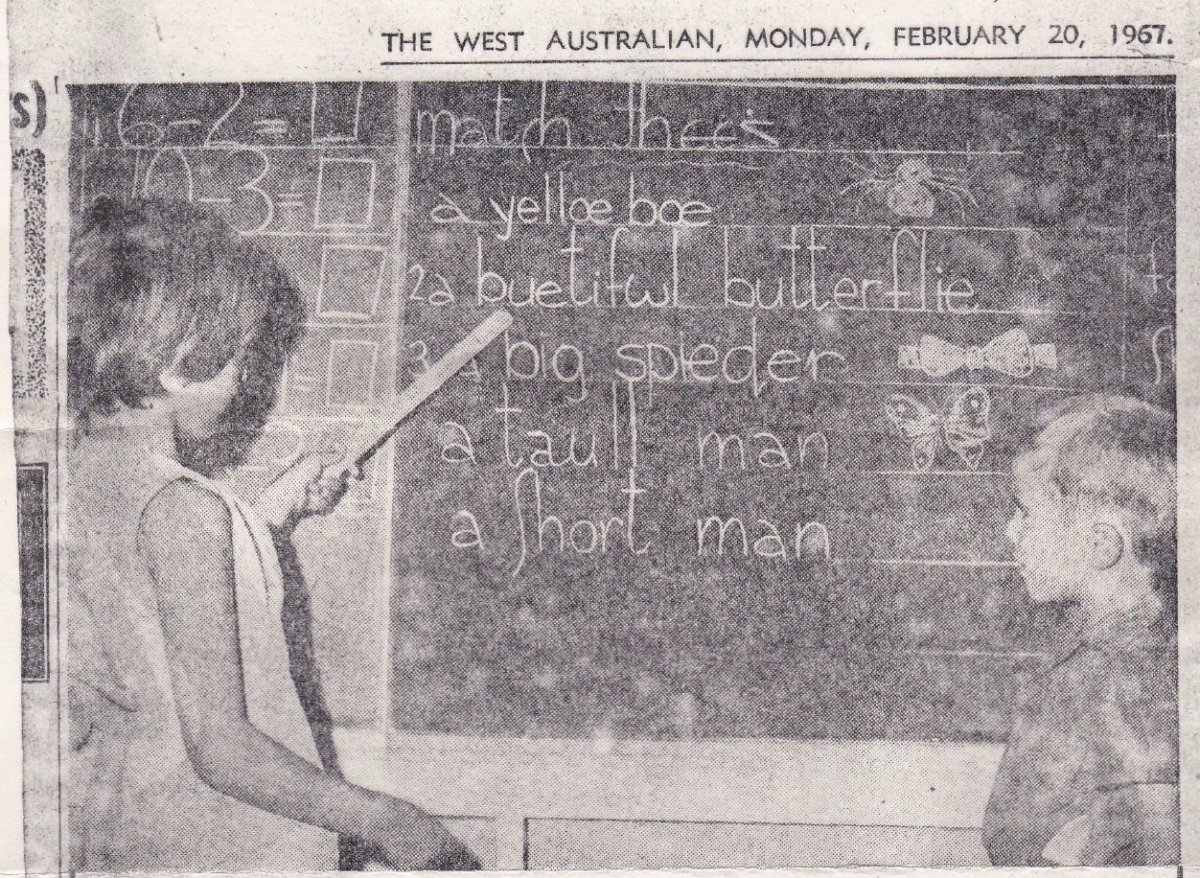 THE WEST AUSTRALIAN, MONDAY, FEBRUARY 20, 1967.
s)
6-2=□
-3=□
=□
match thees
a yelloe boe
2 a buetiful butterflie
3 a big spieder
a taull man
a short man